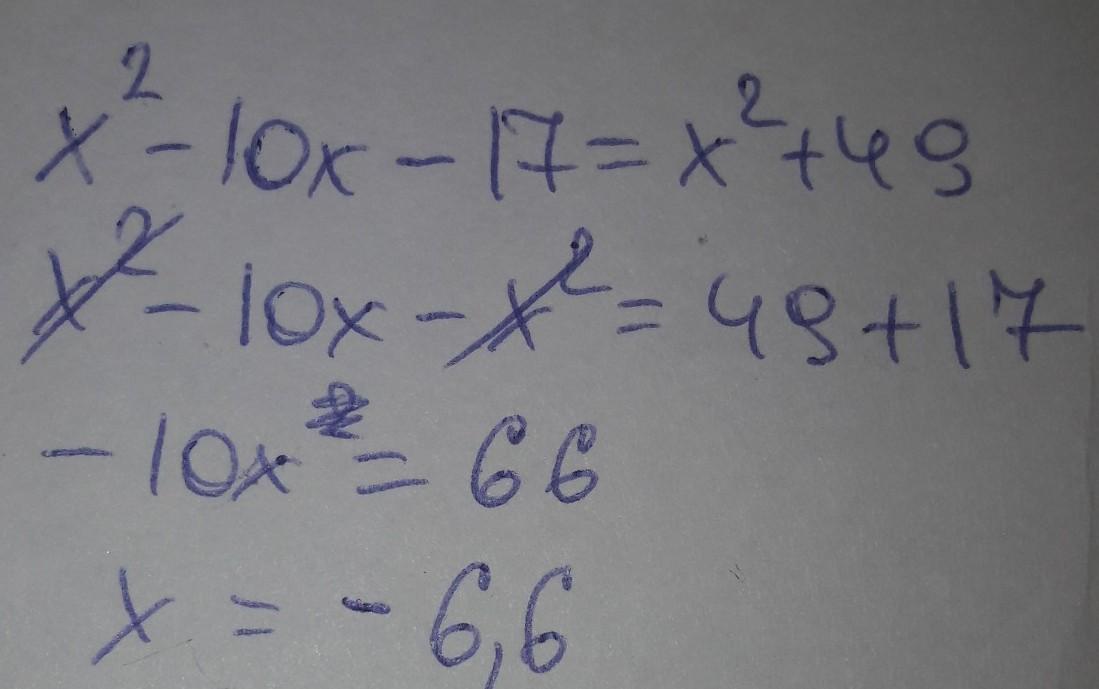 x² - 10x - 17 = x² + 49
x² - 10x - x² = 49 + 17
-10x = 66
x = -6,6